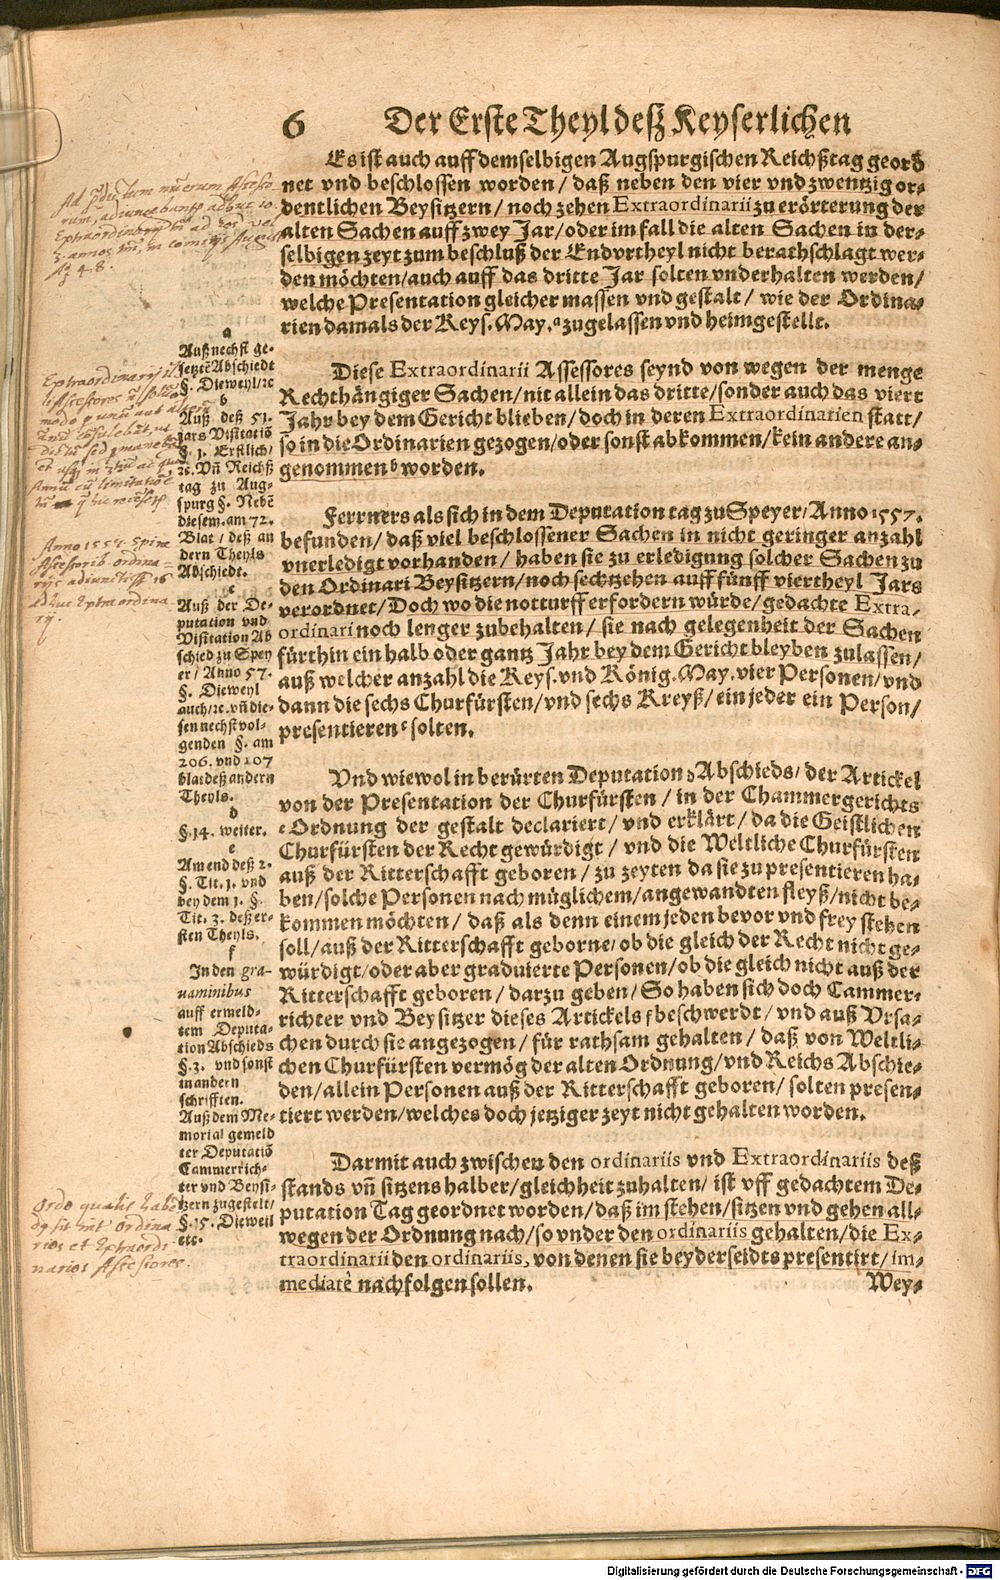 6 Der Erste Theyl deß Keyserlichen
Es ist auch auff demselbigen Augspurgischen Reichßtag georð
net vnd beschlossen worden / daß neben den vier vnd zwentzig or-
dentlichen Beysitzern / noch zehen Extraordinarii zu erörterung der
alten Sachen auff zwey Jar / oder im fall die alten Sachen in der-
selbigen zeyt zum beschluß der Endvrtheyl nicht berathschlagt wer-
den möchten / auch auff das dritte Jar solten vnderhalten werden /
welche Presentation gleicher massen vnd gestalt / wie der Ordina-
rien damals der Keys. May. a zugelassen vnd heimgestellt.
Diese Extraordinarii Assessores seynd von wegen der menge
Rechthängiger Sachen / nit allein das dritte / sonder auch das viert
Jahr bey dem Gericht blieben / doch in deren Extraordinarien statt /
so in die Ordinarien gezogen / oder sonst abkommen / kein andere an-
genommen b worden.
Ferrners als sich in dem Deputation tag zu Speyer / Anno 1557.
befunden / daß viel beschlossener Sachen in nicht geringer anzahl
vnerledigt vorhanden / haben sie zu erledigung solcher Sachen zu
den Ordinari Beysitzern / noch sechtzehen auff fünff viertheyl Jars
verordnet / Doch wo die notturfft erfordern würde / gedachte Extra-
ordinari noch lenger zubehalten / sie nach gelegenheit der Sachen
fürthin ein halb oder gantz Jahr bey dem Gericht bleyben zulassen /
auß welcher anzahl die Keys. vnd König. May. vier Personen / vnd
dann die sechs Churfürsten / vnd sechs Kreyß / ein jeder ein Person /
presentieren c solten.
Vnd wiewol in berürten Deputation d Abschieds / der Artickel
von der Presentation der Churfürsten / in der Chammergerichts
e Ordnung der gestalt declariert / vnd erklärt / da die Geistlichen
Churfürsten der Recht gewürdigt / vnd die Weltliche Churfürsten
auß der Ritterschafft geboren / zu zeyten da sie zu presentieren ha-
ben / solche Personen nach müglichem / angewandten fleyß / nicht be-
kommen möchten / daß als denn einem jeden bevor vnd frey stehen
soll / auß der Ritterschafft geborne / ob die gleich der Recht nicht ge-
würdigt / oder aber graduierte Personen / ob die gleich nicht auß der
Ritterschafft geboren / darzu geben / So haben sich doch Cammer-
richter vnd Beysitzer dieses Artickels f beschwerdt / vnd auß Vrsa-
chen durch sie angezogen / für rathsam gehalten / daß von Weltli-
chen Churfürsten vermög der alten Ordnung / vnd Reichs Abschie-
den / allein Personen auß der Ritterschafft geboren / solten presen-
tiert werden / welches doch jetziger zeyt nicht gehalten worden.
Darmit auch zwischen den ordinariis vnd Extraordinariis deß
stands vñ sitzens halber / gleichheit zuhalten / ist vff gedachtem De-
putation Tag geordnet worden / daß im stehen / sitzen vnd gehen all-
wegen der Ordnung nach / so vnder den ordinariis gehalten / die Ex-
traordinarii den ordinariis, von denen sie beyderseidts presentirt / im-
mediatè nachfolgen sollen.
Wey-
a
Auß nechst ge-
setztē Abschiedt
§. Dieweyl / ꝛc
b
Auß deß 51.
Jars Visitatiō
§. 1. Erstlich /
ꝛc. Vñ Reichß
tag zu Aug-
spurg §. Nebē
diesem. am 72.
Blat / deß an
dern Theyls
Abschiedt.
c
Auß der De-
putation vnd
Visitation Ab
schied zu Spey
er / Anno 57.
§. Dieweyl
auch / ꝛc. vñ die-
sen nechst vol-
genden §. am
206. vnd 207
blat deß andern
Theyls.
d
§. 14. weiter.
e
Am end deß 2.
§. Tit. 1. vnd
bey dem 1. §.
Tit. 3. deß er-
sten Theyls.
f
In den gra-
uaminibus
auff ermeld-
tem Deputa-
tion Abschieds
§. 3. vnd sonst
in andern
schrifften.
Auß dem Me-
morial gemeld
ter Deputatiō
Cammerrich-
ter vnd Beysi-
tzern zugestelt /
§. 15. Dieweil
etc.
Anno 1557. Spirae
Assessorib. ordina-
rijs adiuncti 16
adhuc Extraordina
rij.
Ordo qualis habe
Ordina
rios et Extraordi
narios Assessores.
Digitalisierung gefördert durch die Deutsche Forschungsgemeinschaft - DFG